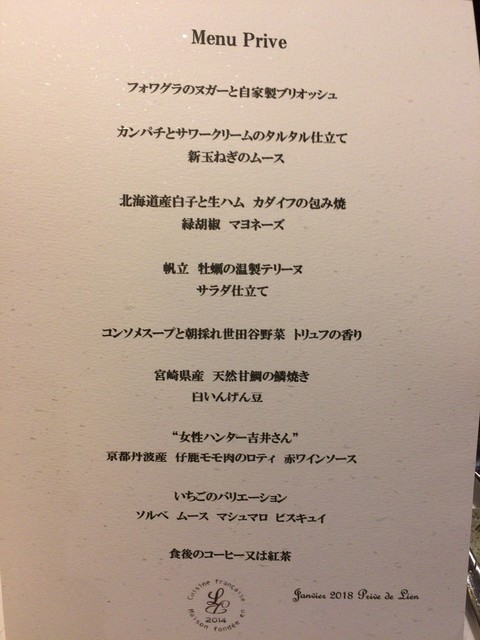 Menu Prive
フォワグラのヌガーと自家製ブリオッシュ
カンパチとサワークリームのタルタル仕立て
新玉ねぎのムース
北海道産白子と生ハム カダイフの包み焼
緑胡椒 マヨネーズ
帆立 牡蠣の温製テリーヌ
サラダ仕立て
コンソメスープと朝採れ世田谷野菜 トリュフの香り
宮崎県産 天然甘鯛の鱗焼き
白いんげん豆
“女性ハンター吉井さん”
京都丹波産 仔鹿モモ肉のロティ 赤ワインソース
いちごのバリエーション
ソルベ ムース マシュマロ ビスキュイ
食後のコーヒー又は紅茶
Cuisine française
2014
Maison fondée en
Janvier 2018 Prive de Lien